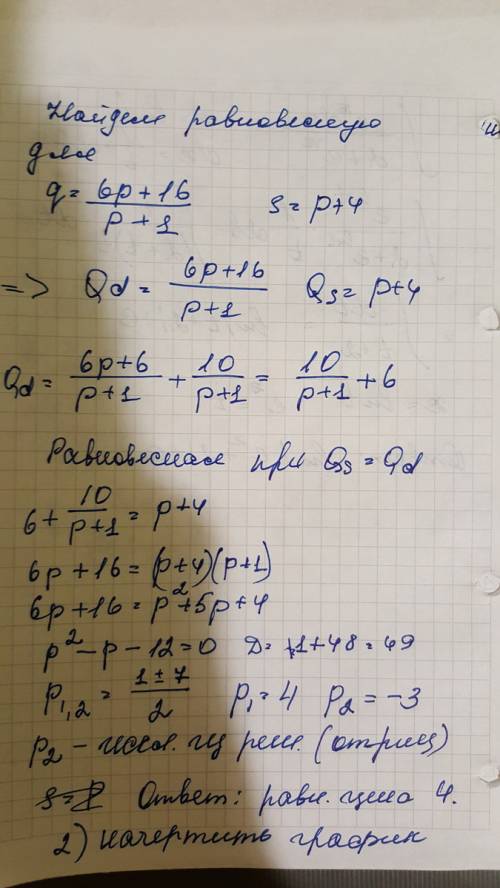 Найдем равновесную
для
q = (6p+16)/(p+1)    s = p+4
=> Qd = (6p+16)/(p+1)    Qs = p+4
Qd = (6p+6)/(p+1) + 10/(p+1) = 10/(p+1) + 6
Равновесная при Qs = Qd
6 + 10/(p+1) = p+4
6p+16 = (p+4)(p+1)
6p+16 = p²+5p+4
p² - p - 12 = 0    D = 1+48 = 49
p₁,₂ = (1 ± 7)/2    p₁ = 4    p₂ = -3
p₂ - искл. из реш. (отриц)
Ответ: равн. цена 4.
2) начертить график